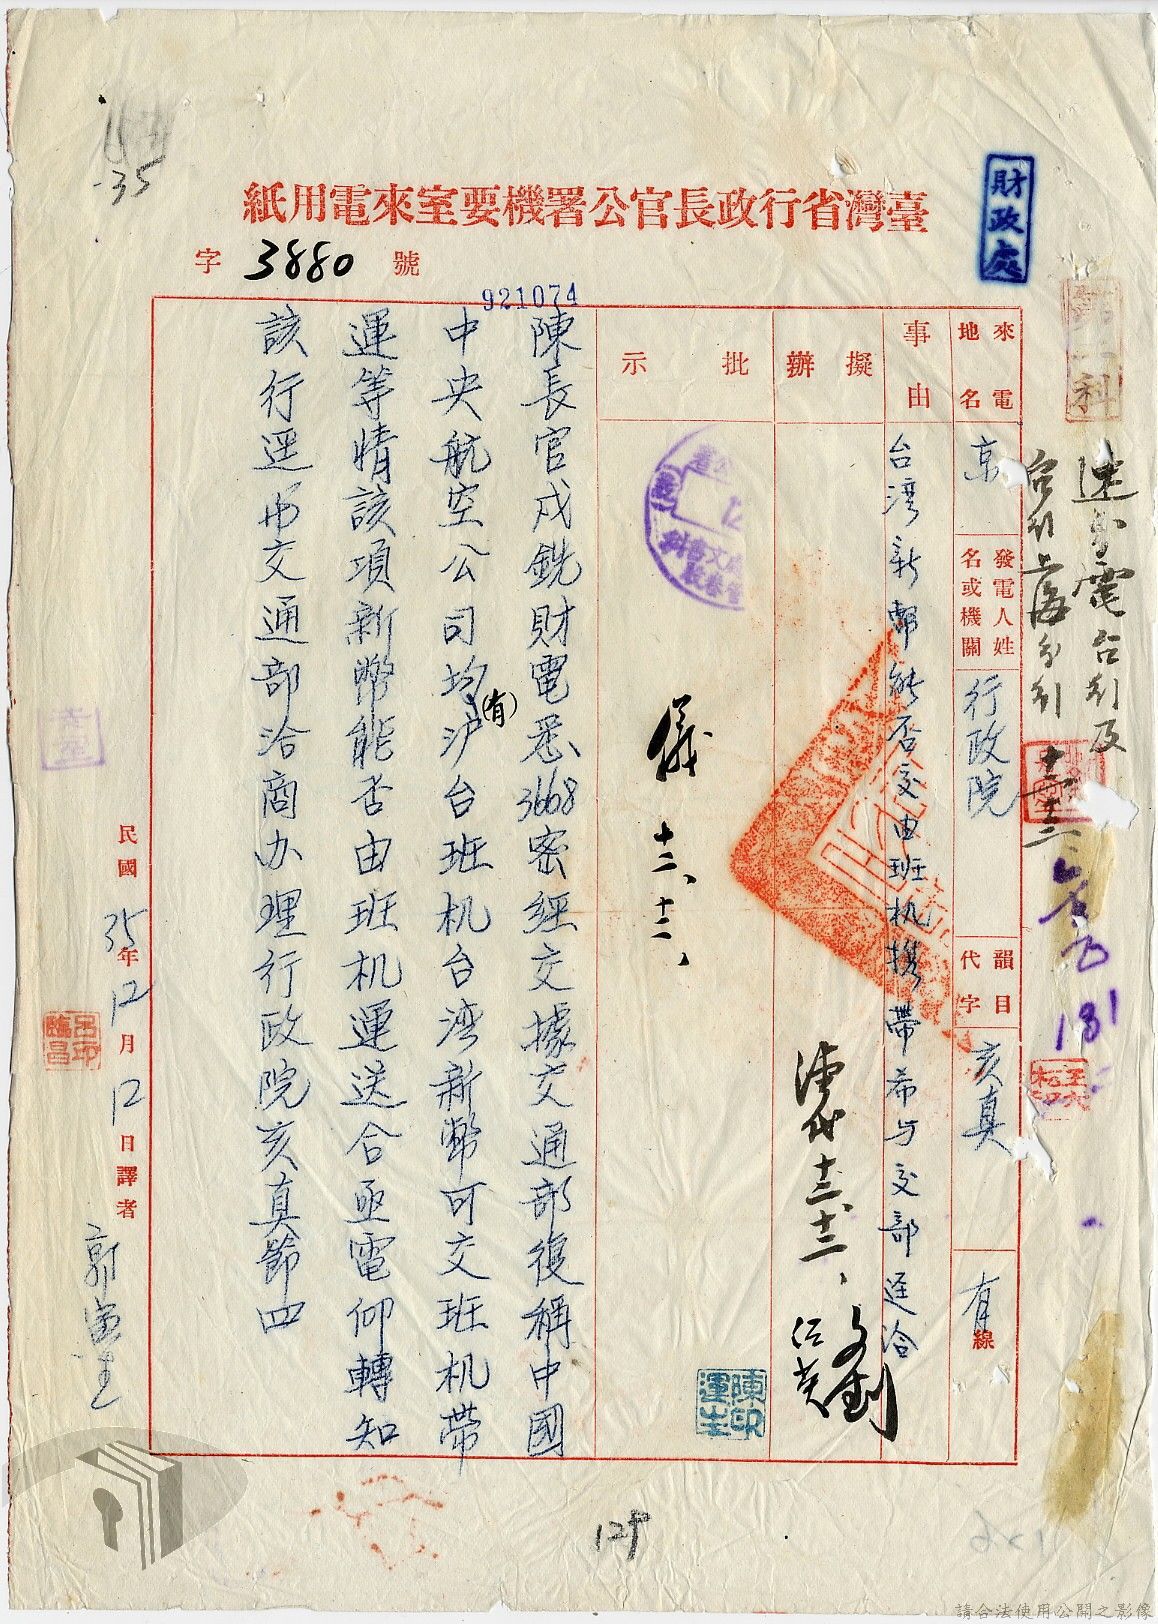 臺灣省行政長官公署機要室來電用紙
字 3880 號
921074
財政處
來電地名
京
發電人姓名或機關
行政院
韻目代字
亥真
有線
事由
台湾新幣能否交由班机携帶希与交部逕洽
擬辦
批示
儀 十二、十二、
陳長官戍銑財電悉3668密經交據交通部復稱中國
中央航空公司均(有)沪台班机台湾新幣可交班机帶
運等情該項新幣能否由班机運送合亟電仰轉知
該行逕向交通部洽商办理行政院亥真節四
民國35年12月12日譯者
速分電台列及
181
-35
129
陳印運生
呂印臨昌
請合法使用公開之影像